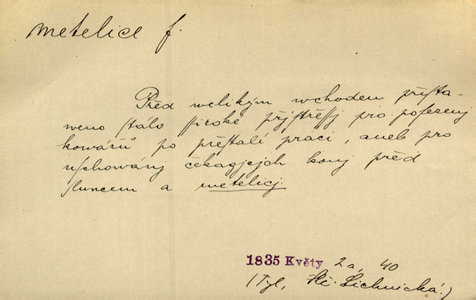 metelice f.
Před welikým wchodem přista-
weno stálo široké přjstřešj pro posezenj
kowářů po přestalé práci, aneb pro
uchowánj čekagjcjch konj před
sluncem a metelicj.
1835 Květy 2a, 40
(Tyl, Lichnická.)